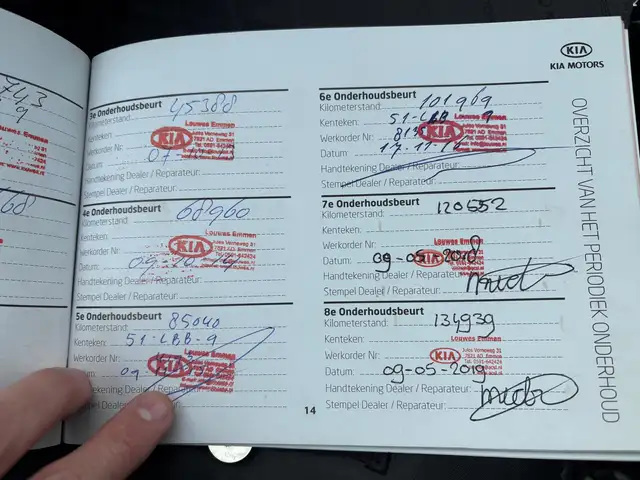 743
9
68
3e Onderhoudsbeurt
Kilometerstand: 45388
Kenteken:
Louwes Emmen
Werkorder Nr:
KIA
Jules Verneweg 31
7821 AD Emmen
Datum: 07
Handtekening Dealer / Reparateur:
Stempel Dealer / Reparateur:
4e Onderhoudsbeurt
Kilometerstand: 68960
Kenteken:
Louwes Emmen
Werkorder Nr:
KIA
Jules Verneweg 31
7821 AD Emmen
Tel. 0591-642424
Datum: 09-10-14
Handtekening Dealer / Reparateur:
Stempel Dealer / Reparateur:
5e Onderhoudsbeurt
Kilometerstand: 85040
Kenteken: 51-LBB-9
Louwes Emmen
Werkorder Nr:
KIA
Datum: 09
Handtekening Dealer / Reparateur:
Stempel Dealer / Reparateur:
6e Onderhoudsbeurt
Kilometerstand: 101969
Kenteken: 51-LBB-9
Louwes Emmen
Werkorder Nr:
KIA
Datum: 17-11-
Handtekening Dealer / Reparateur:
Stempel Dealer / Reparateur:
7e Onderhoudsbeurt
Kilometerstand: 120552
Kenteken:
Louwes Emmen
Werkorder Nr:
KIA
Jules Verneweg 31
7821 AD Emmen
Datum: 09-05-2018
Handtekening Dealer / Reparateur:
Stempel Dealer / Reparateur:
8e Onderhoudsbeurt
Kilometerstand: 134939
Kenteken:
Louwes Emmen
Werkorder Nr:
KIA
Jules Verneweg 31
7821 AD Emmen
Tel. 0591-642424
Datum: 09-05-2019
Handtekening Dealer / Reparateur:
Stempel Dealer / Reparateur:
14
KIA
KIA MOTORS
OVERZICHT VAN HET PERIODIEK ONDERHOUD